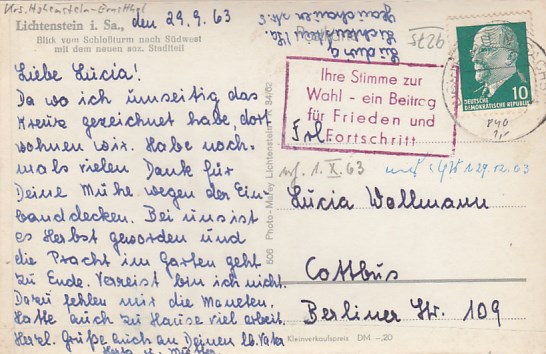 Krs. Hohenstein-Ernstthal
Lichtenstein i. Sa.,
Blick vom Schloßturm nach Südwest
mit dem neuen soz. Stadtteil
den 29.9.63
Liebe Lucia!
Da wo ich umseitig das
Kreuz gezeichnet habe, dort
wohnen wir. Habe noch-
mals vielen Dank für
Deine Mühe wegen der Ein-
banddecken. Bei uns ist
es Herbst geworden und
die Pracht im Garten geht
zu Ende. Verreist bin ich nicht.
Dazu fehlen mir die Moneten.
Hatte auch zu Hause viel Arbeit.
Herzl. Grüße auch an Deinen lb. Vater
Herta u. Mutter
506 Photo-Mürey Lichtenstein
Lichtenstein/Sa
9529
DEUTSCHE
DEMOKRATISCHE REPUBLIK
10
Ihre Stimme zur
Wahl - ein Beitrag
für Frieden und
Fortschritt
Frl.
1. X. 63
29.12.63
Lucia Wollmann
Cottbus
Berliner Str. 109
Kleinverkaufspreis DM -,20